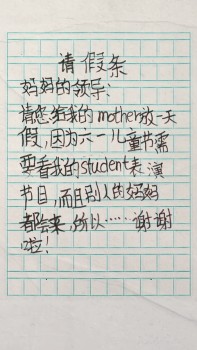 请假条
妈妈的领导:
请您给我的mother放一天
假,因为六一儿童节需
要看我的student表演
节目,而且别人的妈妈
都会来,所以……谢谢
啦!